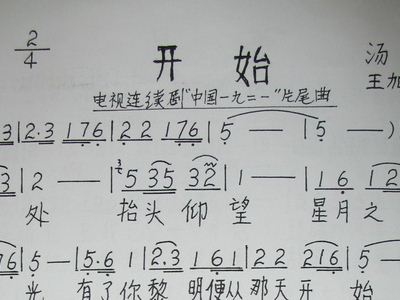 2/4
开 始 汤
电视连续剧"中国一九二一"片尾曲 王加
3 | 2·3 176 | 2 2 176 | 5 — | 5 — )
3 | 2 — | 5 35 32 | 1 — | 1 6 12
处 抬头 仰 望 星月之
76 | 5 — | 5·6 1 | 2·3 161 | 2 2 216 | 5
光 有了你黎 明便从 那天开 始